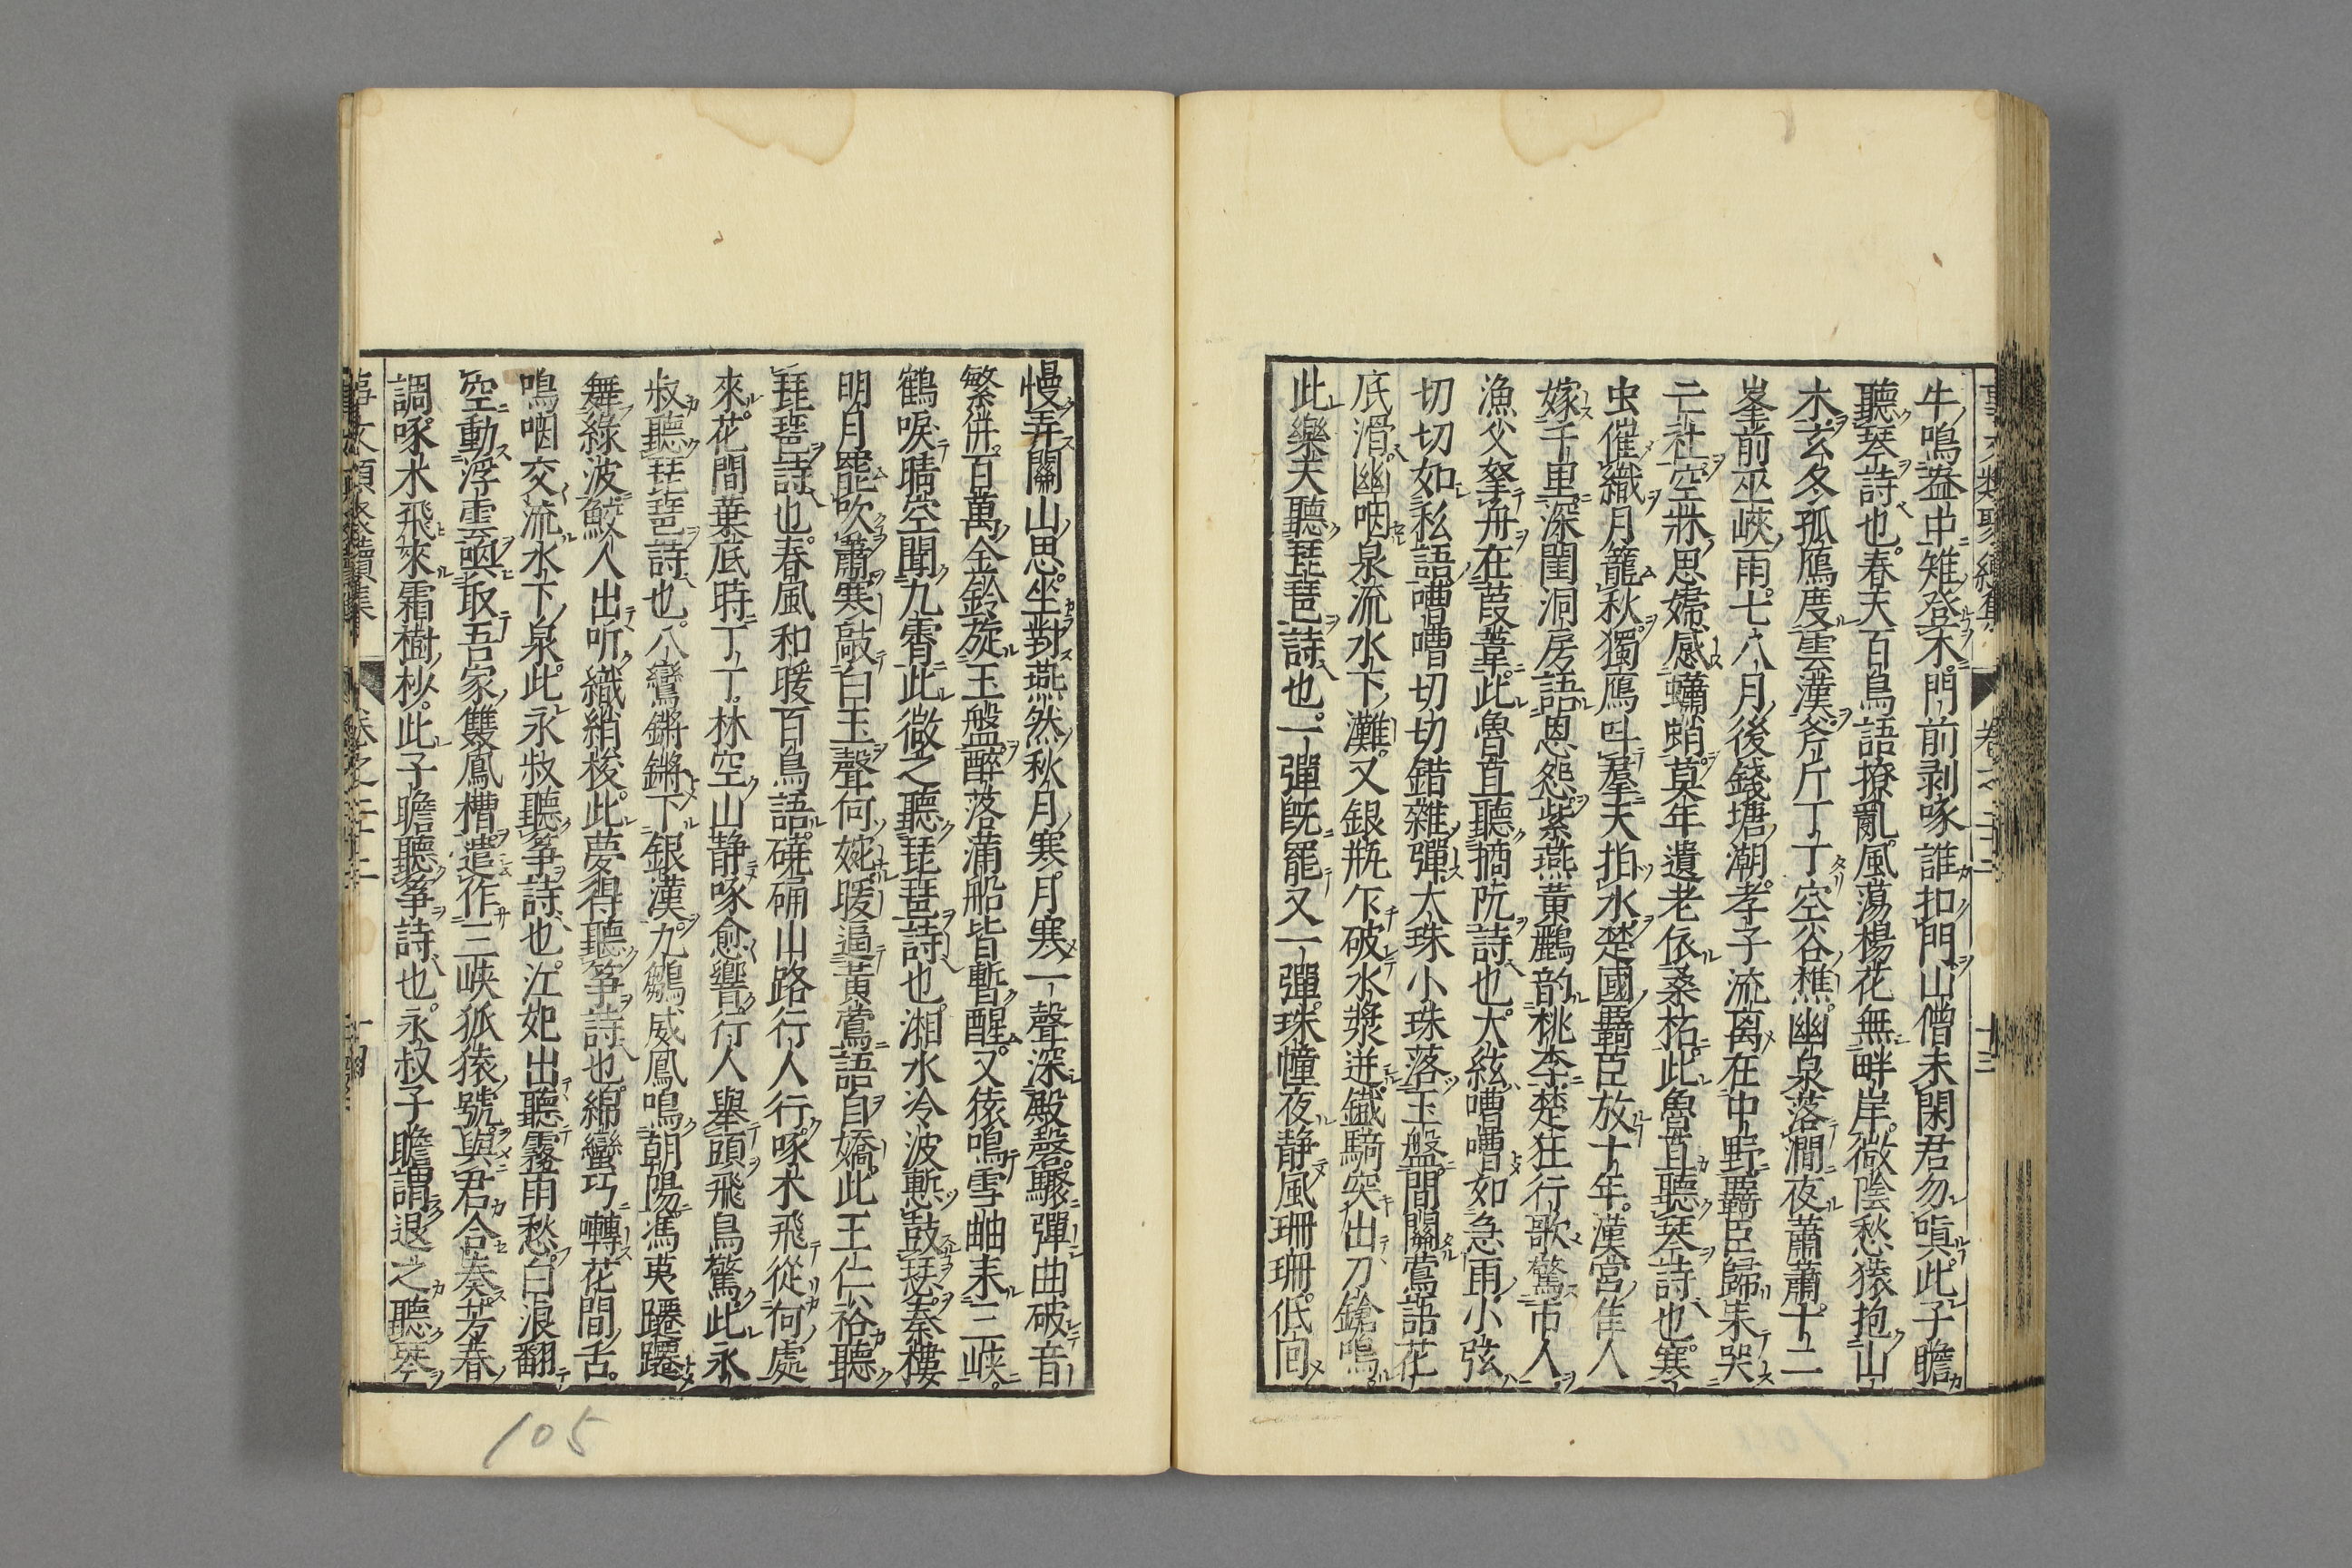 牛鳴盎中雉登木門前剥啄誰扣門山僧未閑君勿嗔此子瞻
聽琴詩也春天百鳥語撩亂風蕩楊花無畔岸微陰愁猿抱山
木玄冬孤鴈度雲漢斧斤丁丁空谷樵幽泉落澗夜蕭蕭十二
峯前巫峽雨七八月後錢塘潮孝子流离在中野羈臣歸来哭
二社空牀思婦感蠨蛸莫年遺老依桑柘此魯直聽琴詩也寒
虫催織月籠秋獨鴈叫羣天拍水楚國羈臣放十年漢宮佳人
嫁千里深閨洞房語恩怨紫燕黄鸝韵桃李楚狂行歌驚市人
漁父拏舟在葭葦此魯直聽摘阮詩也大絃嘈嘈如急雨小弦
切切如私語嘈嘈切切錯雜彈大珠小珠落玉盤間關鶯語花
底滑幽咽泉流水下灘又銀瓶乍破水漿迸鐵騎突出刀鎗鳴
此樂天聽琵琶詩也一彈既罷又一彈珠幢夜静風珊珊低回
慢弄關山思坐對燕然秋月寒月寒一聲深殿磬驟彈曲破音
繁併百萬金鈴旋玉盤醉落滿船皆暫醒又猿鳴雪岫来三峽
鶴唳晴空聞九霄此微之聽琵琶詩也湘水冷波慙鼓瑟秦樓
明月罷吹簫寒敲白玉聲何婉暖逼黄鶯語自嬌此王仁裕聽
琵琶詩也春風和暖百鳥語硗确山路行人行啄木飛從何處
來花間葉底時丁丁林空山静啄愈響行人舉頭飛鳥驚此永
叔聽琵琶詩也八鸞鏘鏘下銀漢九鶵威鳳鳴朝陽馮夷躚躚
舞綠波鮫人出听織綃梭此夢得聽筝詩也綿蠻巧囀花間舌
鳴咽交流水下泉此永叔聽筝詩也江妃出聽霧雨愁白浪翻
空動浮雲喚取吾家雙鳳槽遣作三峽孤猿號與君合奏芳春
調啄木飛來霜樹杪此子瞻聽筝詩也永叔子瞻謂退之聽琴
105